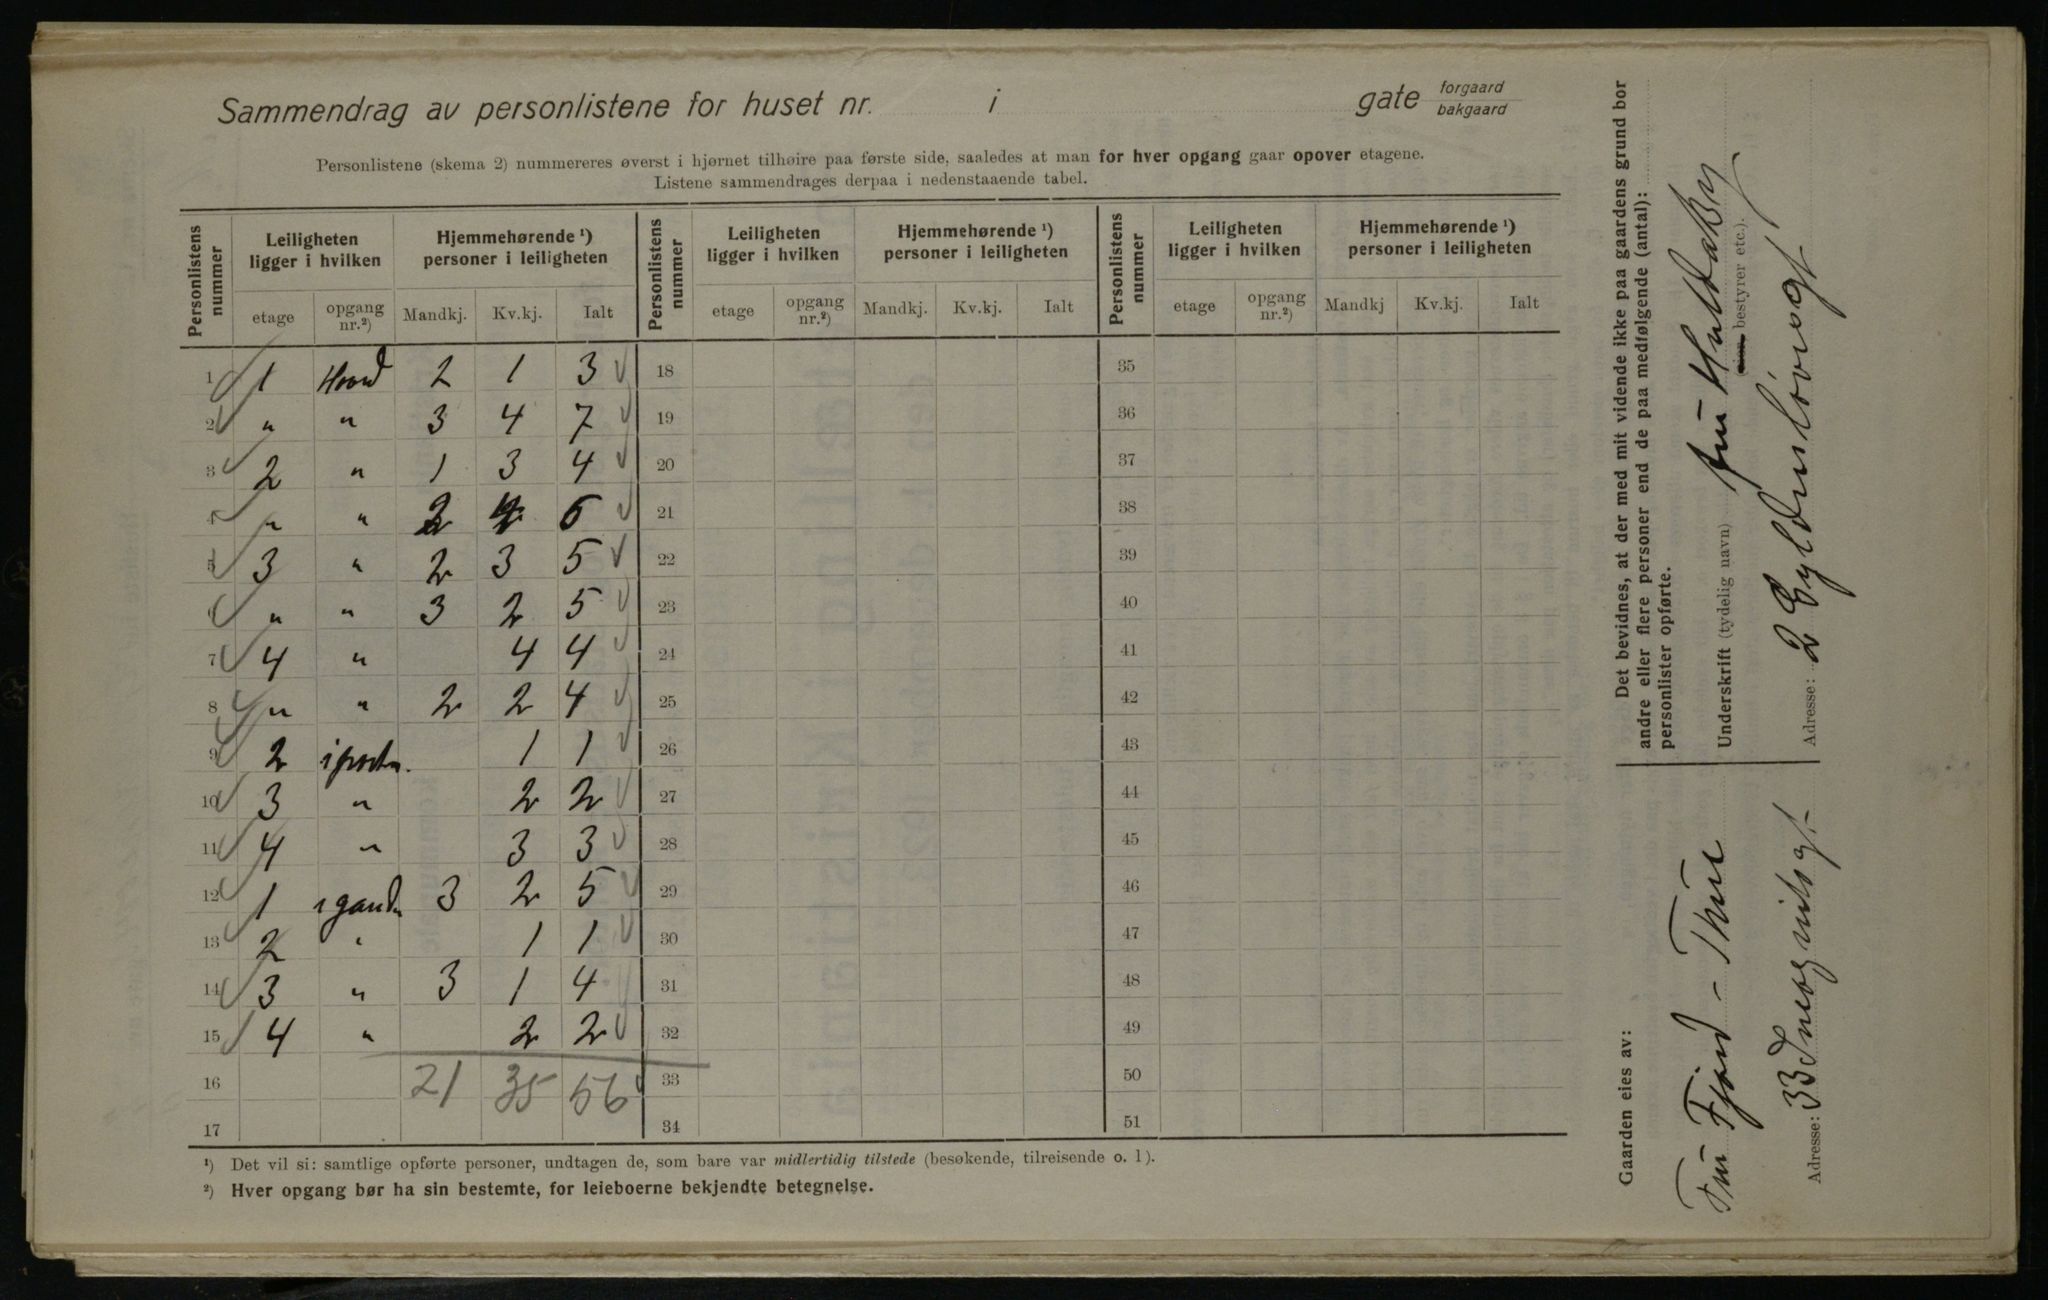 Sammendrag av personlistene for huset nr. i gate forgaard bakgaard
Personlistene (skema 2) nummereres øverst i hjørnet tilhøire paa første side, saaledes at man for hver opgang gaar opover etagene.
Listene sammendrages derpaa i nedenstaaende tabel.
Personlistens nummer | Leiligheten ligger i hvilken | Hjemmehørende ¹) personer i leiligheten | Personlistens nummer | Leiligheten ligger i hvilken | Hjemmehørende ¹) personer i leiligheten | Personlistens nummer | Leiligheten ligger i hvilken | Hjemmehørende ¹) personer i leiligheten
etage | opgang nr.²) | Mandkj. | Kv.kj. | Ialt | etage | opgang nr.²) | Mandkj. | Kv.kj. | Ialt | etage | opgang nr.²) | Mandkj | Kv.kj. | Ialt
1 | 1 | Hoved | 2 | 1 | 3 | 18 | 35
2 | " | " | 3 | 4 | 7 | 19 | 36
3 | 2 | " | 1 | 3 | 4 | 20 | 37
4 | " | " | 2 | 4 | 6 | 21 | 38
5 | 3 | " | 2 | 3 | 5 | 22 | 39
6 | " | " | 3 | 2 | 5 | 23 | 40
7 | 4 | " | 4 | 4 | 24 | 41
8 | " | " | 2 | 2 | 4 | 25 | 42
9 | 2 | i porten. | 1 | 1 | 26 | 43
10 | 3 | " | 2 | 2 | 27 | 44
11 | 4 | " | 3 | 3 | 28 | 45
12 | 1 | i gaarden | 3 | 2 | 5 | 29 | 46
13 | 2 | " | 1 | 1 | 30 | 47
14 | 3 | " | 3 | 1 | 4 | 31 | 48
15 | 4 | " | 2 | 2 | 32 | 49
16 | 21 | 35 | 56 | 33 | 50
17 | 34 | 51
¹) Det vil si: samtlige opførte personer, undtagen de, som bare var midlertidig tilstede (besøkende, tilreisende o. l).
²) Hver opgang bør ha sin bestemte, for leieboerne bekjendte betegnelse.
Det bevidnes, at der med mit vidende ikke paa gaardens grund bor
andre eller flere personer end de paa medfølgende (antal):
personlister opførte.
Underskrift (tydelig navn) Fru
(eier, bestyrer etc.).
Adresse: 2 Gyldenløvesgt.
Gaarden eies av:
Fru Fjord - Thue
Adresse: 33